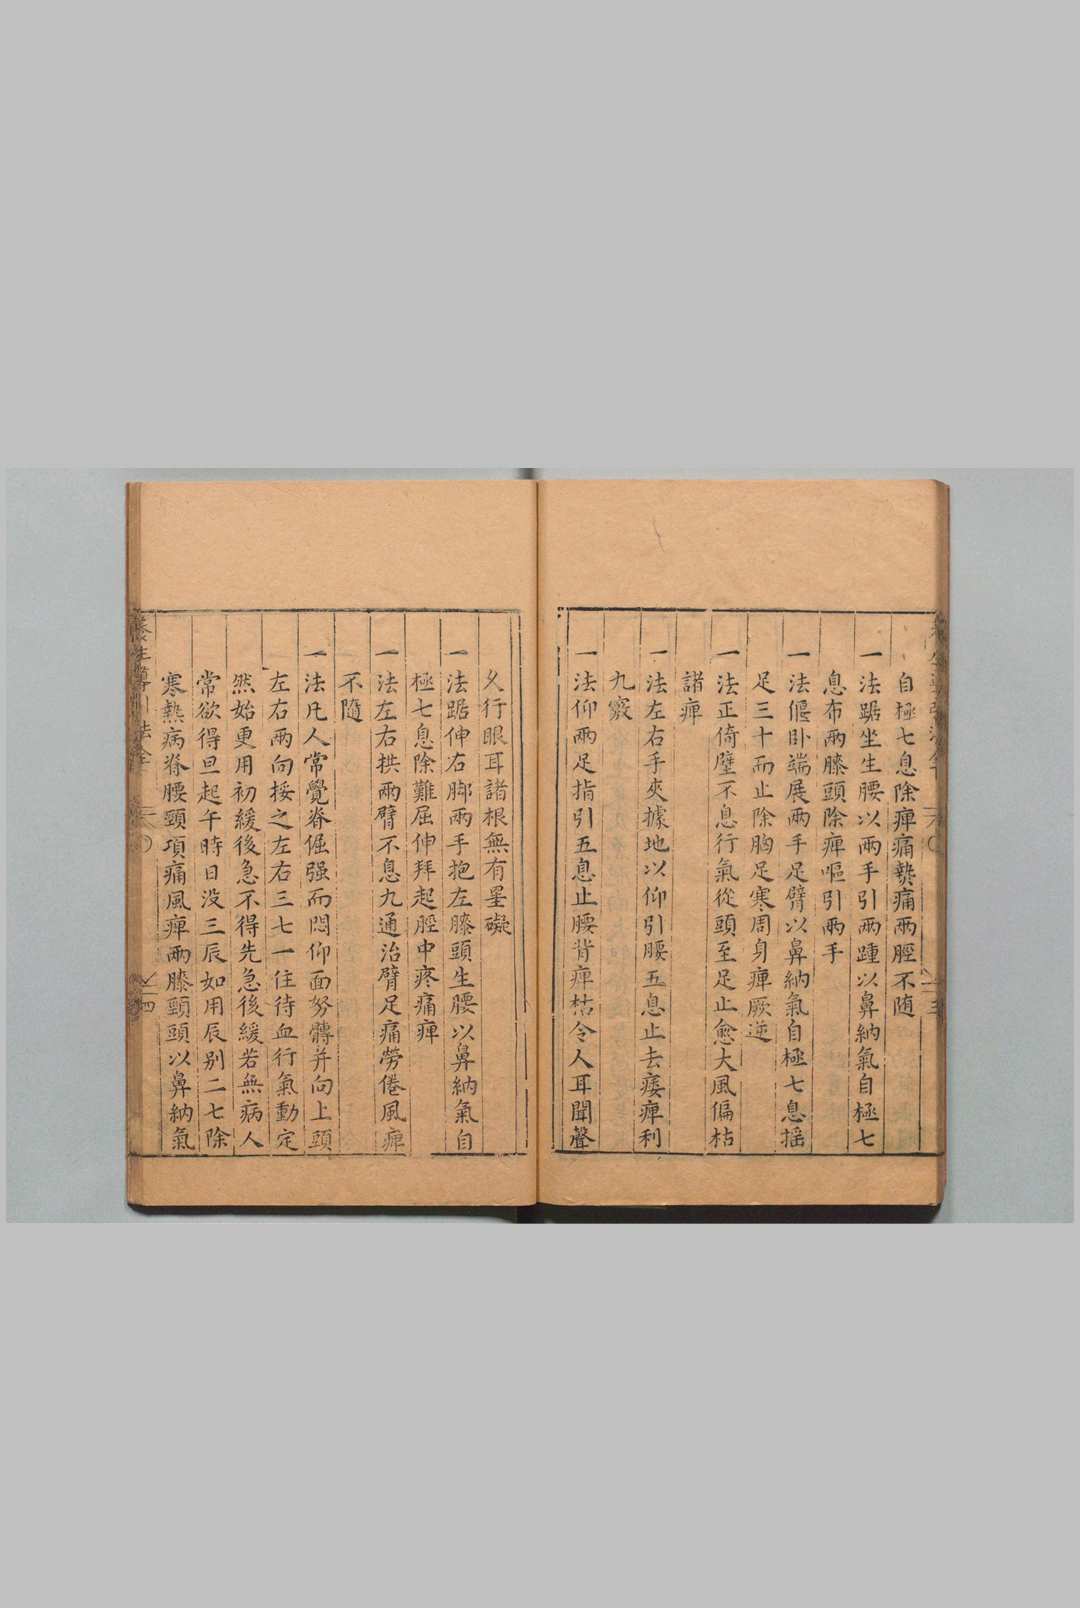 自極七息除痺痛熱痛兩脛不随
一法踞坐生腰以兩手引兩踵以鼻納氣自極七
息布兩膝頭除痺嘔引兩手
一法偃卧端展兩手足臂以鼻納氣自極七息揺
足三十而止除胸足寒周身痺厥逆
一法正倚壁不息行氣從頭至足止愈大風偏枯
諸痺
一法左右手夾據地以仰引腰五息止去痿痺利
九竅
一法仰兩足指引五息止腰背痺枯令人耳聞聲
久行眼耳諸根無有罣礙
一法踞伸右脚兩手抱左膝頭生腰以鼻納氣自
極七息除難屈伸拜起脛中疼痛痺
一法左右拱兩臂不息九通治臂足痛勞倦風痺
不隨
一法凡人常覺脊倔强而悶仰面努髆并向上頭
左右兩向挼之左右三七一住待血行氣動定
然始更用初緩後急不得先急後緩若無病人
常欲得旦起午時日没三辰如用辰别二七除
寒熱病脊腰頸項痛風痺兩膝頸頭以鼻納氣
養生導引法全
四
三